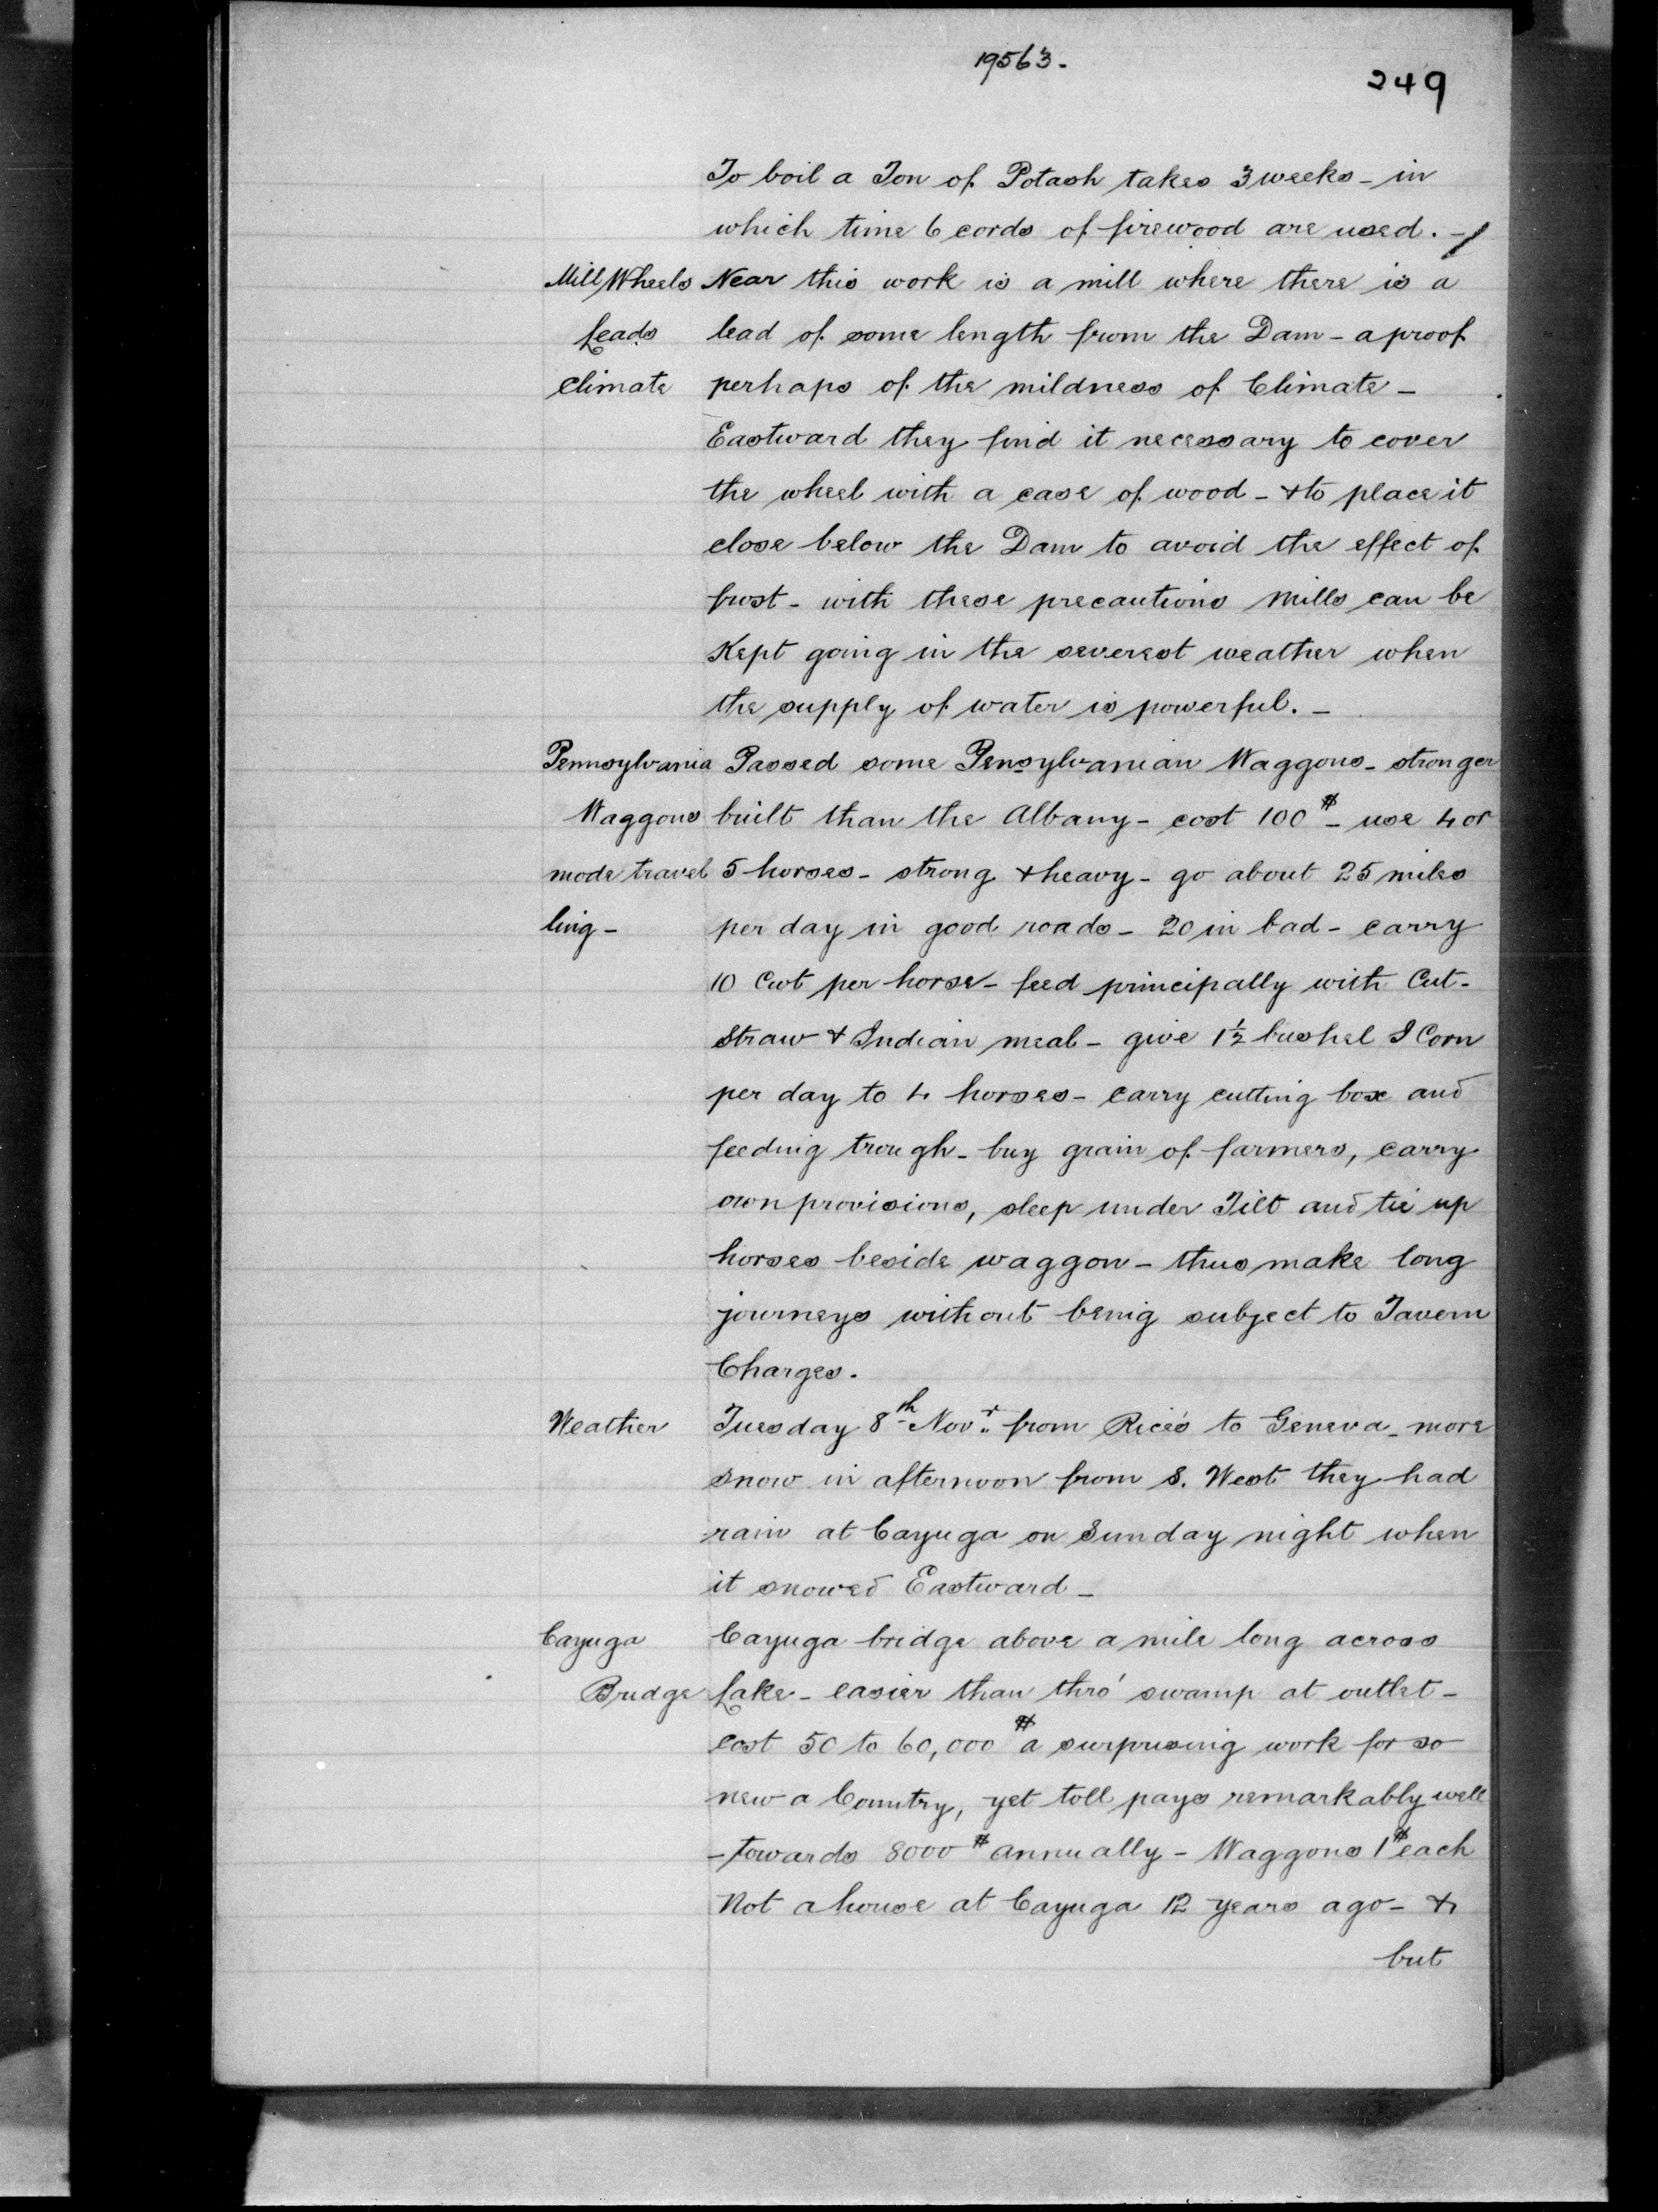 19563.
249
To boil a Ton of Potash takes 3 weeks - in
which time 6 cords of firewood are used. -
Mill Wheels Near this work is a mill where there is a
Leads lead of some length from the Dam - a proof
climate perhaps of the mildness of Climate -
Eastward they find it necessary to cover
the wheel with a case of wood - & to place it
close below the Dam to avoid the effect of
frost - with these precautions mills can be
Kept going in the severest weather when
the supply of water is powerful. -
Pennsylvania Passed some Pensylvanian Waggons - stronger
Waggons built than the Albany - cost 100 $ - use 4 or
mode travel 5 horses - strong & heavy - go about 25 miles
ling - per day in good roads - 20 in bad - carry
10 Cwt per horse - feed principally with Cut-
straw & Indian meal - give 1½ bushel I Corn
per day to 4 horses - carry cutting box and
feeding trough - buy grain of farmers, carry
own provisions, sleep under Tilt and tie up
horses beside waggon - thus make long
journeys without being subject to Tavern
Charges.
Weather Tuesday 8th Novr. from Rice's to Geneva - more
snow in afternoon from S. West they had
rain at Cayuga on Sunday night when
it snowed Eastward -
Cayuga Cayuga bridge above a mile long across
Bridge Lake - easier than thro' swamp at outlet -
cost 50 to 60,000 $ a surprising work for so
new a Country, yet toll pays remarkably well
- towards 8000 $ annually - Waggons 1 $ each
Not a house at Cayuga 12 years ago - &
but